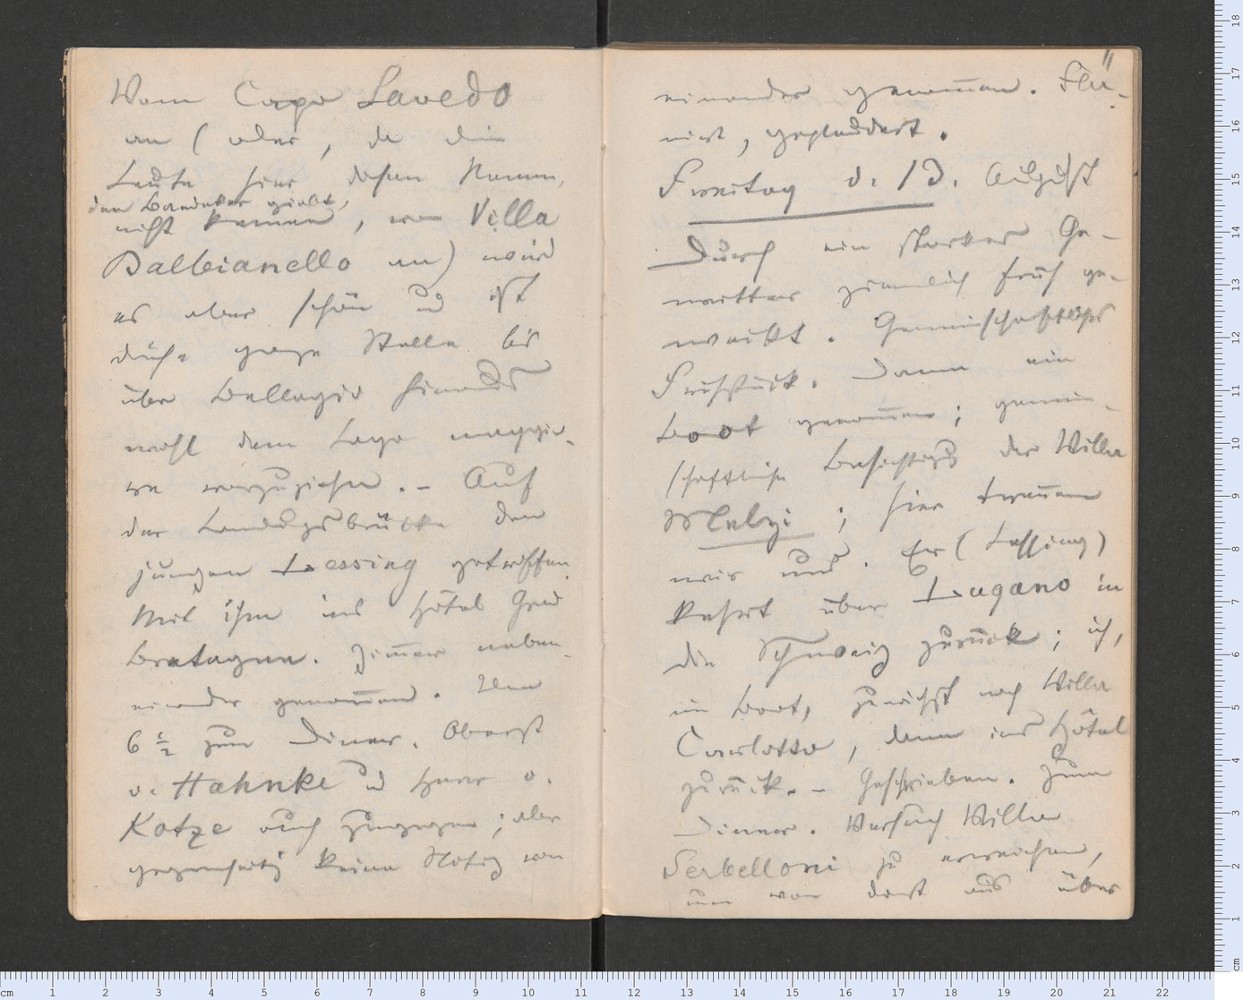 Vom Capo Lavedo
an (oder, da die
Leute hier diesen Namen,
den Baedeker giebt,
nicht kennen, von Villa
Balbianello an) wird
es aber schön und ist
diese ganze Stelle bis
über Bellagio hinaus
wohl dem Lago maggio-
re vorzuziehen. – Auf
der Landungsbrücke den
jungen Lessing getroffen.
Mit ihm ins Hôtel Grand
Bretagne. Zimmer neben-
einander genommen. Um
6 ½ zum Diner. Oberst
v. Hahnke und Herr v.
Kotze auch zugegen; aber
gegenseitig keine Notiz von
11
einander genommen. Fla-
nirt, geplaudert.
Freitag d. 13. August
Durch ein starkes Ge-
witter ziemlich früh ge-
weckt. Gemeinschaftliches
Frühstück. Dann ein
Boot genommen; gemein-
schaftliche Besichtigung der Villa
Melzi; hier trennen
wir uns. Er (Lessing)
kehrt über Lugano in
die Schweiz zurück; ich,
im Boot, zunächst nach Villa
Carlotta, dann ins Hôtel
zurück. – Geschrieben. Zum
Dinner. Versuch Villa
Serbelloni zu erreichen,
um von dort aus über